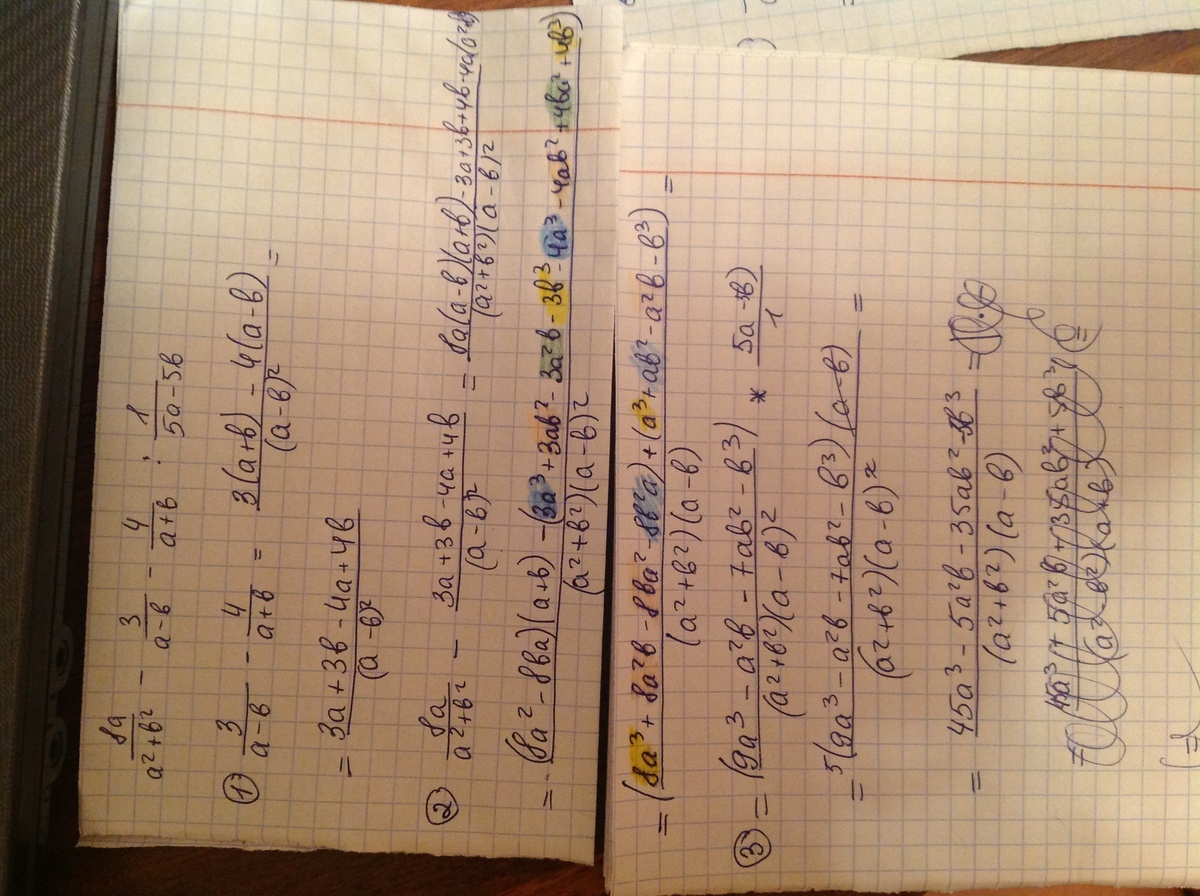 8a/(a²+b²) - 3/(a-b) - 4/(a+b) : 1/(5a-5b)
1) 3/(a-b) - 4/(a+b) = (3(a+b) - 4(a-b))/(a-b)² =
= (3a+3b-4a+4b)/(a-b)²
2) 8a/(a²+b²) - (3a+3b-4a+4b)/(a-b)² = (8a(a-b)(a+b)-3a+3b+4b-4a(a²+b²))/((a²+b²)(a-b)²)
= ((8a²-8ba)(a+b)-(3a³+3ab²-3a²b-3b³-4a³-4ab²+4ba²+4b³))/((a²+b²)(a-b)²)
= ((8a³+8a²b-8ba²-8b²a)+(a³+ab²-a²b-b³))/((a²+b²)(a-b)) =
3) = (9a³-a²b-7ab²-b³)/((a²+b²)(a-b)²) * (5a-5b)/1
= 5(9a³-a²b-7ab²-b³)(a-b)/((a²+b²)(a-b)²) =
= (45a³-5a²b-35ab²-5b³)/((a²+b²)(a-b))